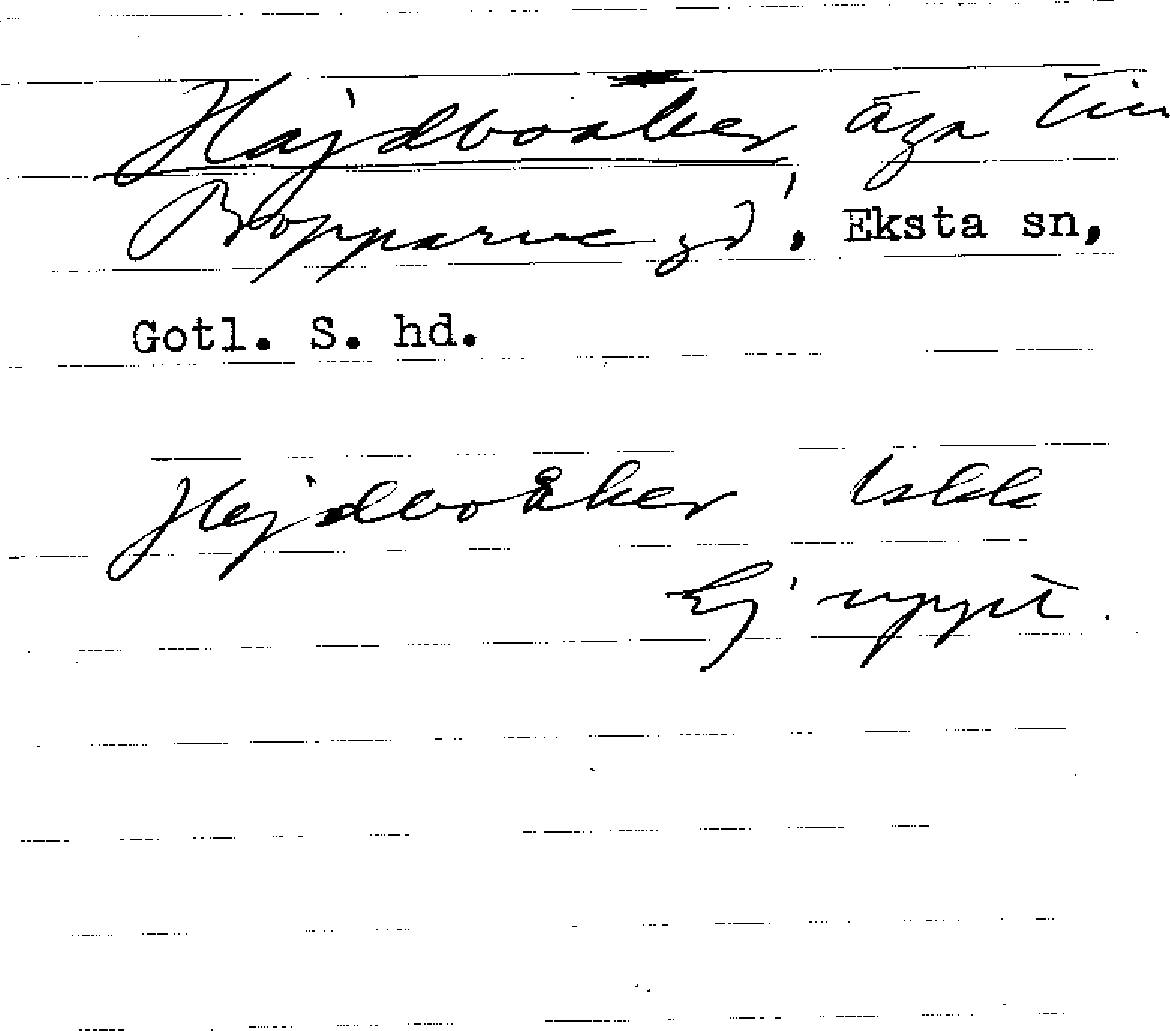 Hajdboåker äga till
Bopparve gd, Eksta sn,
Gotl. S. hd.
Hejdboåker Iskk
Ej uppt.